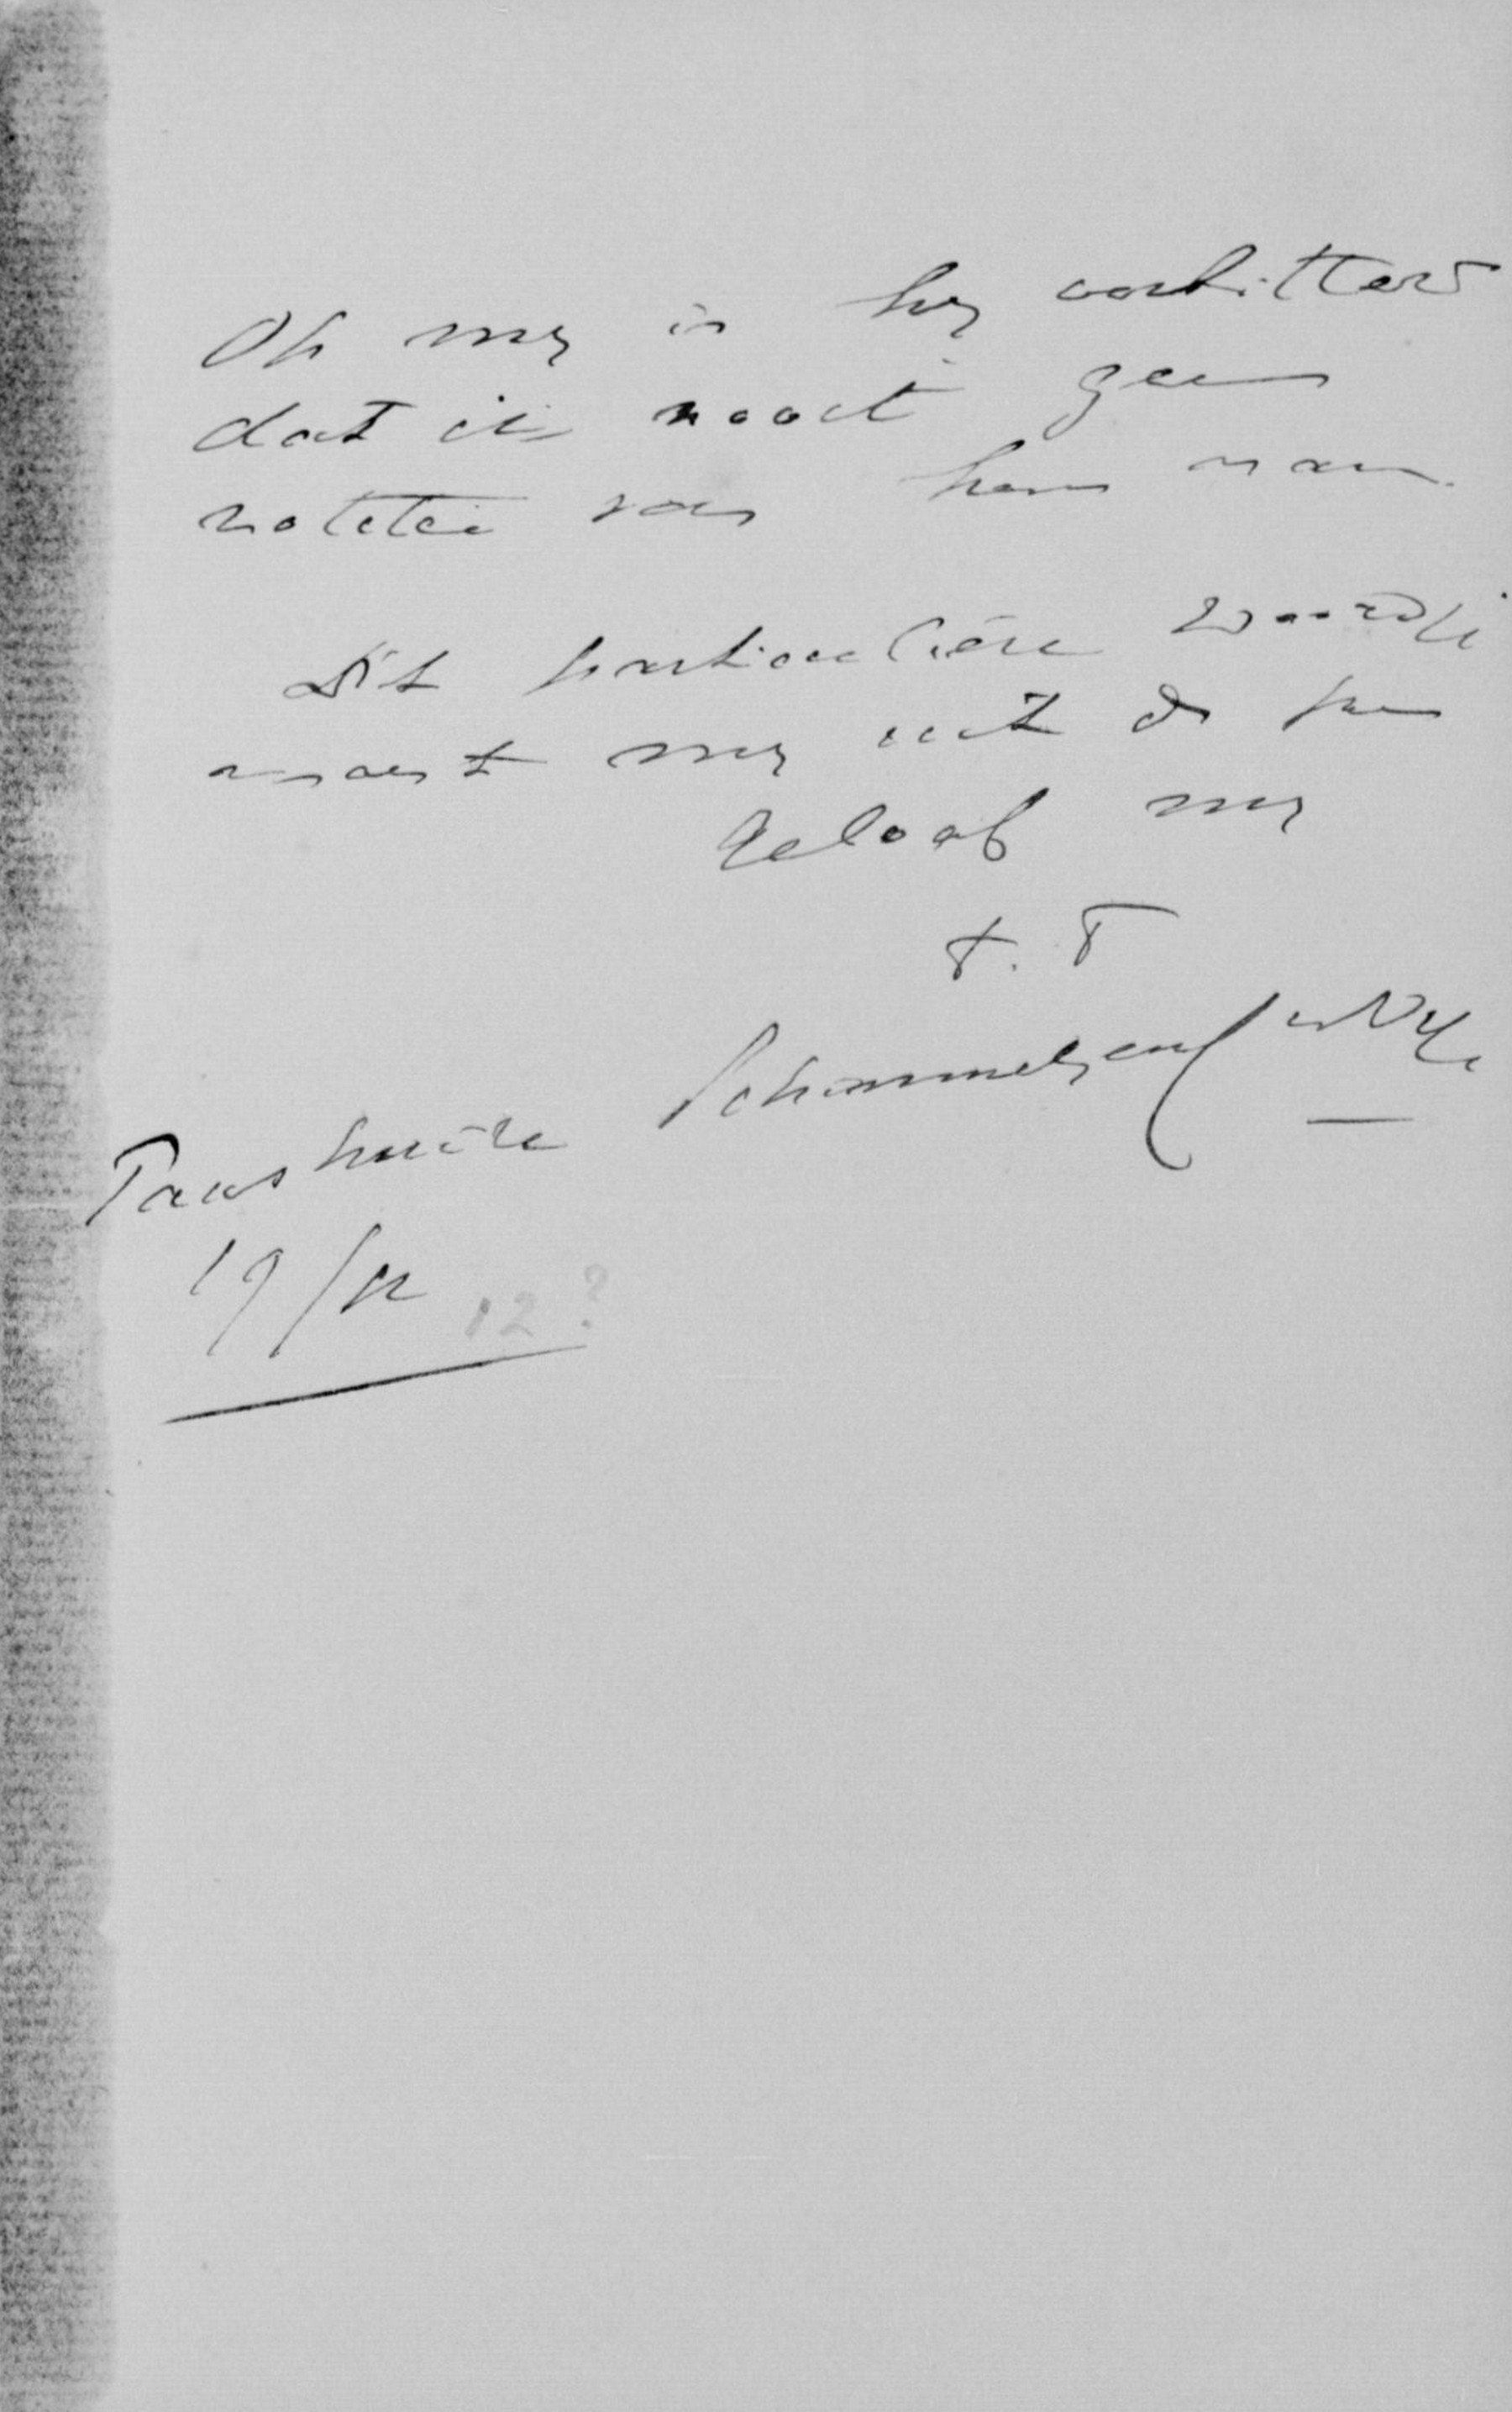 Op my is hy verbitterd
dat ik nooit geen
notitie van hem nam.
Dit particuliere woordje
moest my uit de pen
Geloof my
t. T
Schimmelpenninck vd Oye
Paushuize
19/12 12?